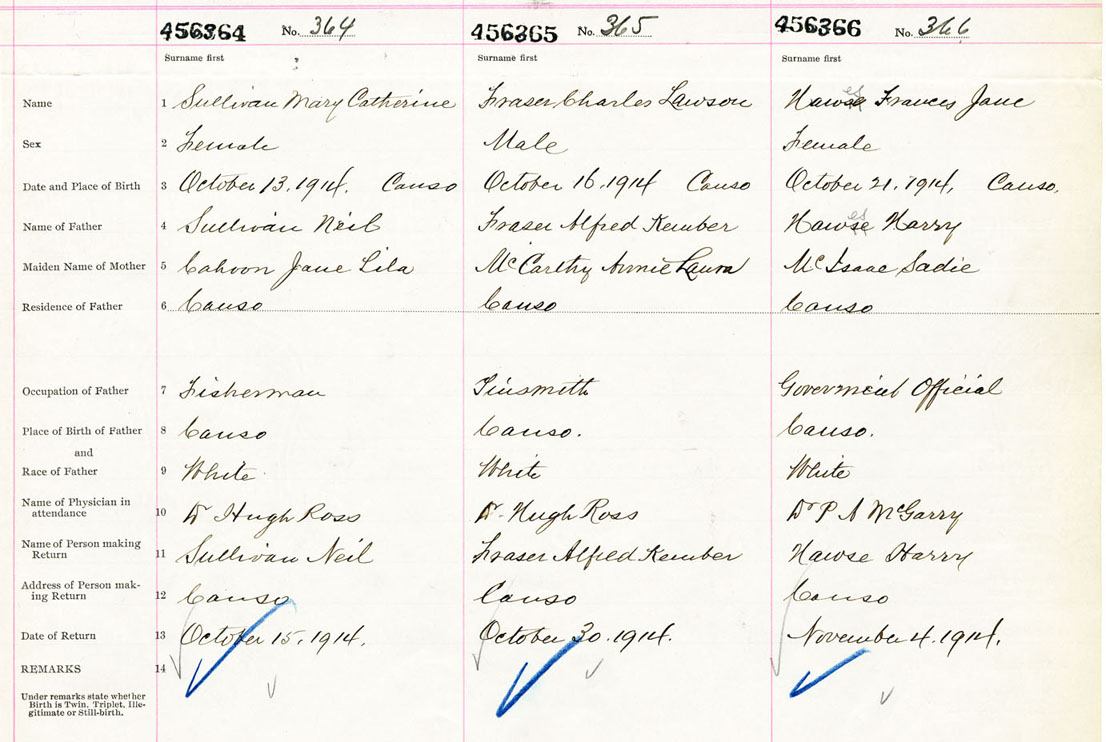 456364 No. 364 456365 No. 365 456366 No. 366
Surname first Surname first Surname first
Name 1 Sullivan Mary Catherine Fraser Charles Lawson Hawse es Frances Jane
Sex 2 Female Male Female
Date and Place of Birth 3 October 13. 1914. Canso October 16. 1914 Canso October 21. 1914, Canso.
Name of Father 4 Sullivan Neil Fraser Alfred Kember Hawse es Harry
Maiden Name of Mother 5 Cahoon Jane Lila McCarthy Annie Laura McIsaac Sadie
Residence of Father 6 Canso Canso Canso
Occupation of Father 7 Fisherman Tinsmith Government Official
Place of Birth of Father 8 Canso Canso. Canso.
and
Race of Father 9 White White White
Name of Physician in
attendance 10 Dr Hugh Ross Dr. Hugh Ross Dr P A McGarry
Name of Person making
Return 11 Sullivan Neil Fraser Alfred Kember Hawse Harry
Address of Person mak-
ing Return 12 Canso Canso Canso
Date of Return 13 October 15, 1914. October 30. 1914. November 4. 1914.
REMARKS 14
Under remarks state whether
Birth is Twin. Triplet, Ille-
gitimate or Still-birth.